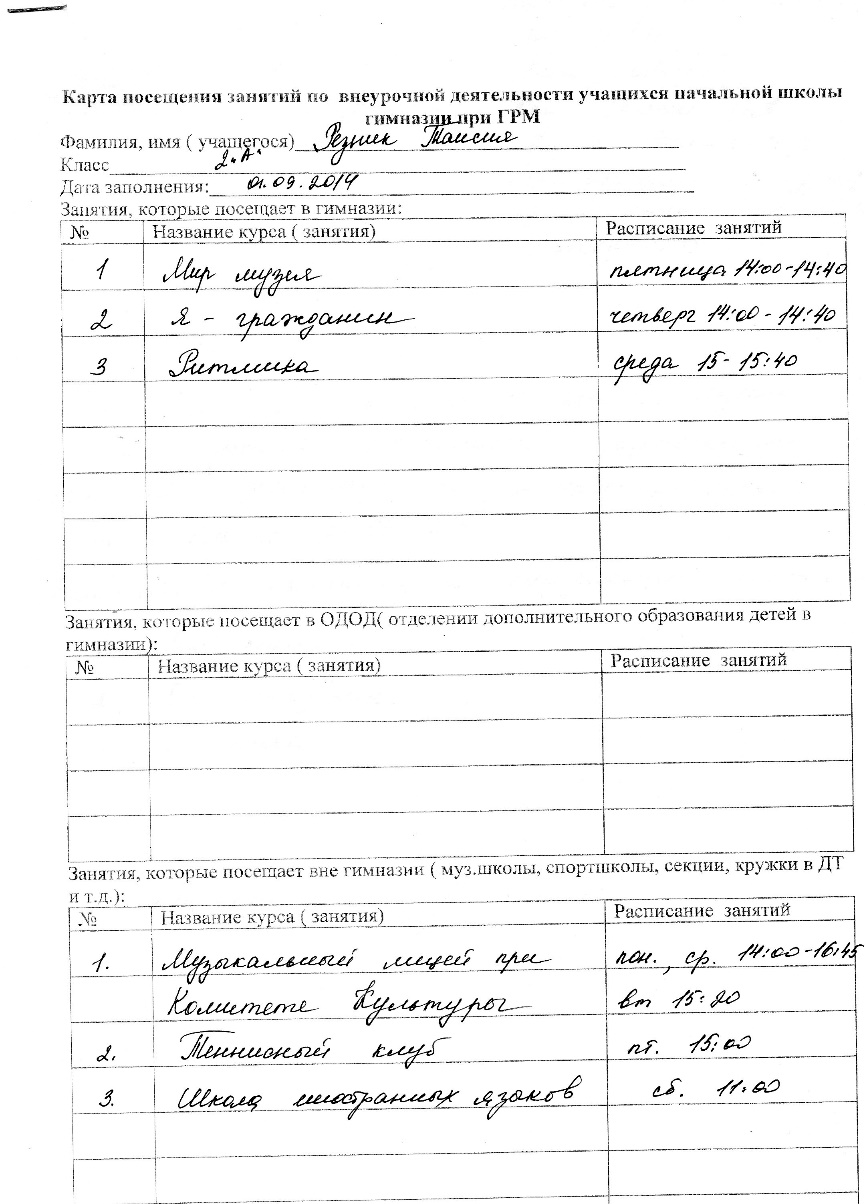 Карта посещения занятий по внеурочной деятельности учащихся начальной школы
гимназии при ГРМ
Фамилия, имя ( учащегося) Резник Таисия
Класс 2 "А"
Дата заполнения: 01.09.2014
Занятия, которые посещает в гимназии:
№ Название курса ( занятия) Расписание занятий
1 Мир музея пятница 14:00-14:40
2 Я - гражданин четверг 14:00 - 14:40
3 Ритмика среда 15- 15:40
Занятия, которые посещает в ОДОД( отделении дополнительного образования детей в
гимназии):
№ Название курса ( занятия) Расписание занятий
Занятия, которые посещает вне гимназии ( муз.школы, спортшколы, секции, кружки в ДТ
и т.д.):
№ Название курса ( занятия) Расписание занятий
1. Музыкальный лицей при пон., ср. 14:00-16:45
Комитете Культуры вт 15:20
2. Теннисный клуб пт. 15:00
3. Школа иностранных языков сб. 11:00